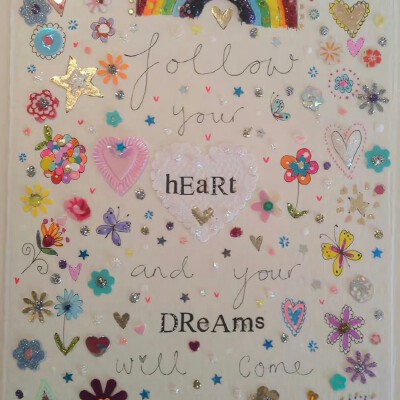 follow
your
hEaRt
and your
DReAms
will come